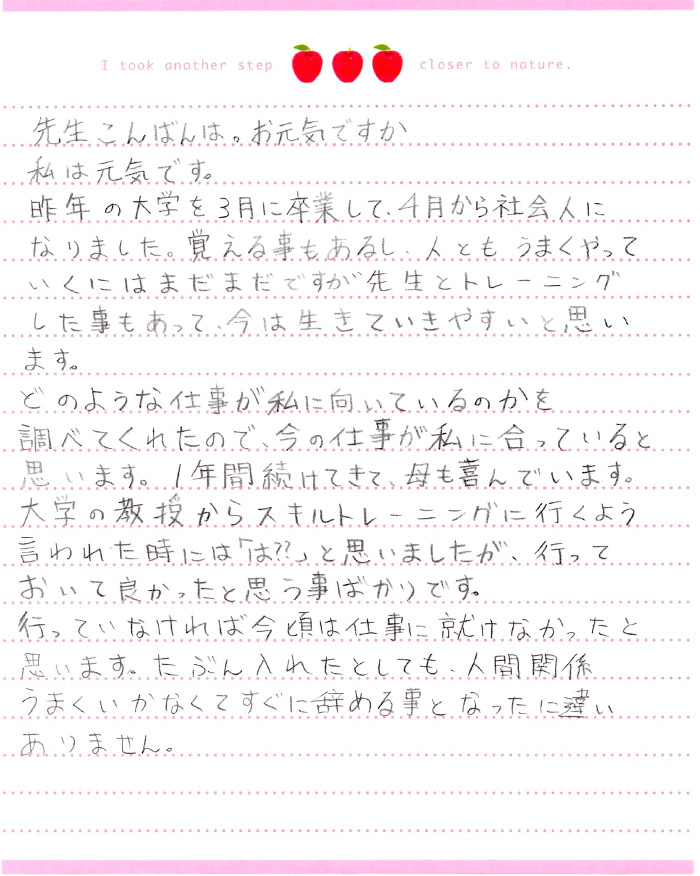 I took another step closer to nature.
先生こんばんは。お元気ですか
私は元気です。
昨年の大学を3月に卒業して、4月から社会人に
なりました。覚える事もあるし、人とも うまくやって
いくにはまだまだですが先生とトレーニング
した事もあって、今は生きていきやすいと思い
ます。
どのような仕事が私に向いているのかを
調べてくれたので、今の仕事が私に合っていると
思います。1年間続けてきて、母も喜んでいます。
大学の教授からスキルトレーニングに行くよう
言われた時には「は??」と思いましたが、行って
おいて良かったと思う事ばかりです。
行っていなければ今頃は仕事に就けなかったと
思います。たぶん入れたとしても、人間関係
うまくいかなくてすぐに辞める事となったに違い
ありません。